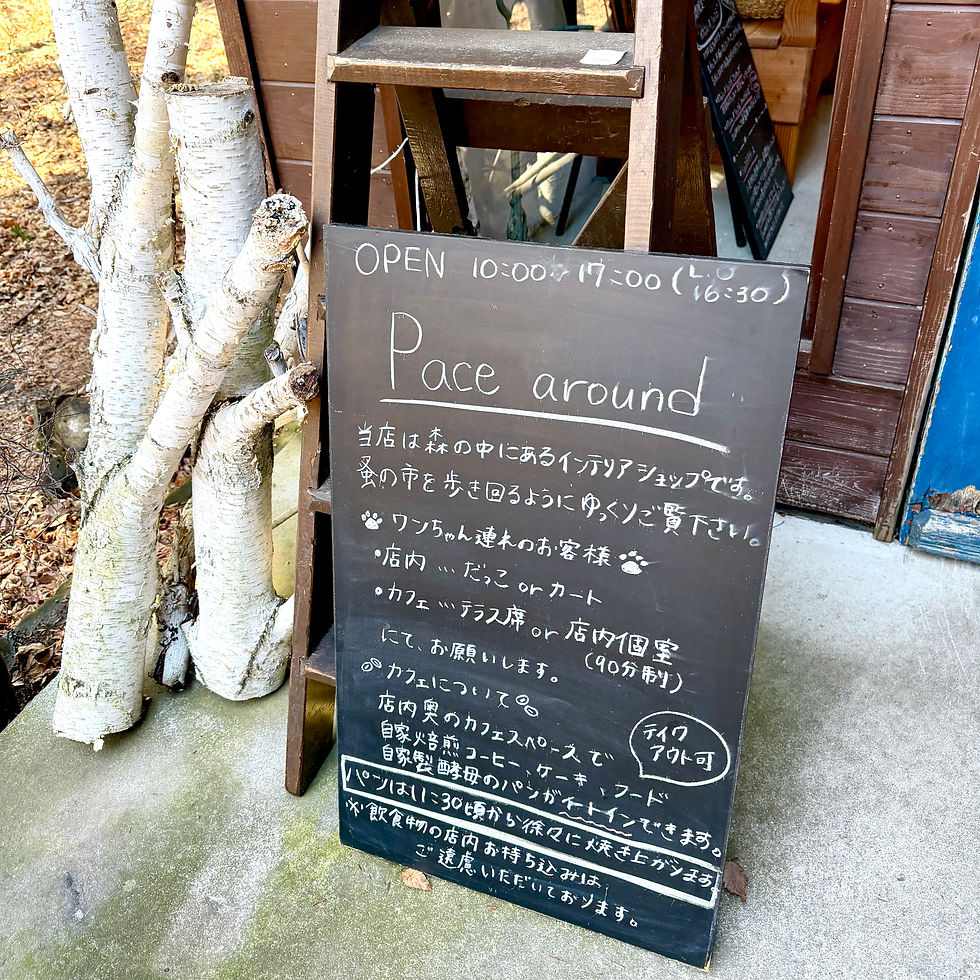 OPEN 10:00〜17:00 (L.O 16:30)
Pace around
当店は森の中にあるインテリアショップです。
蚤の市を歩き回るようにゆっくりご覧下さい。
ワンちゃん連れのお客様
•店内 … だっこ or カート
•カフェ … テラス席 or 店内個室
(90分制)
にて、お願いします。
カフェについて
店内奥のカフェスペースで
自家焙煎コーヒー、ケーキ、フード
自家製酵母のパンがイートインできます。
テイク
アウト可
パンは11:30頃から徐々に焼き上がります
※飲食物の店内お持ち込みは
ご遠慮いただいております。